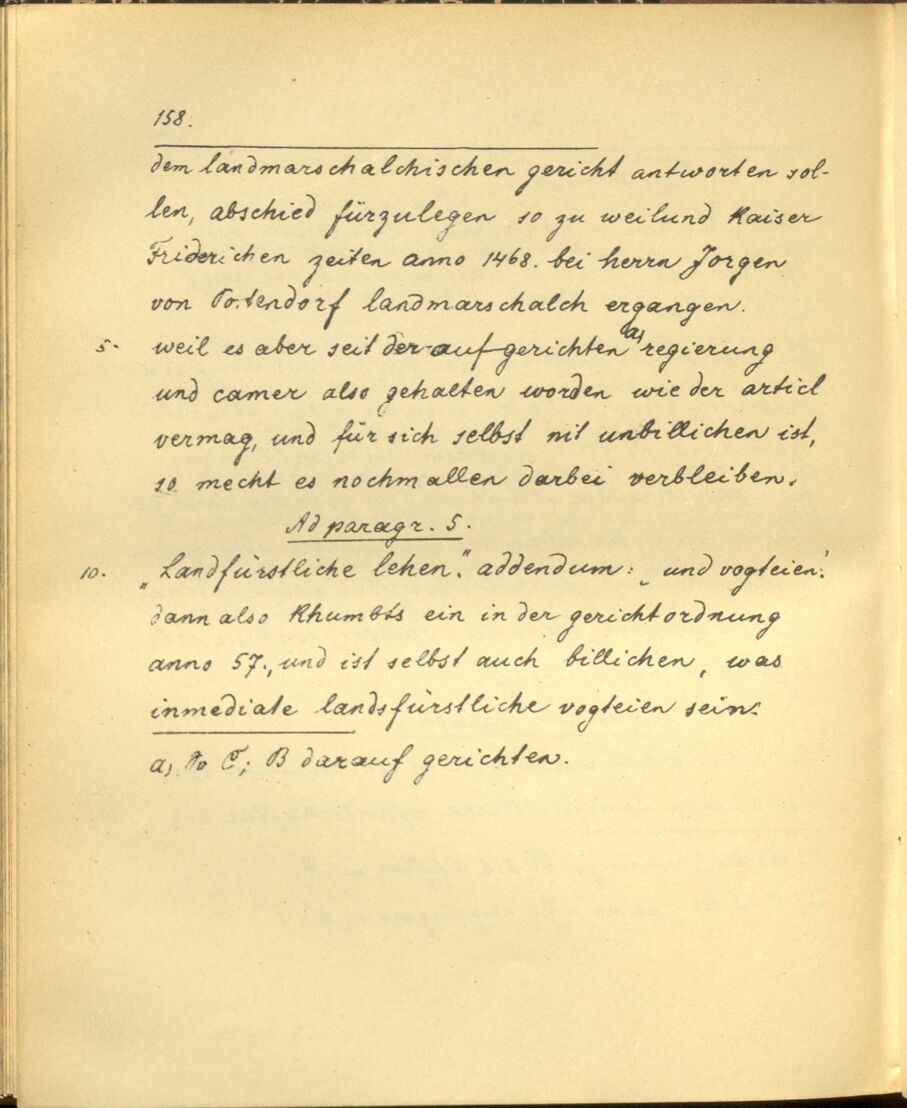 158.
dem landmarschalchischen gericht antworten sol-
len, abschied fürzulegen so zu weilund Kaiser
Friderichen zeiten anno 1468. bei herrn Jorgen
von Potendorf landmarschalch ergangen.
5. weil es aber seit der aufgerichten a) regierung
und camer also gehalten worden wie der articl
vermag, und für sich selbst nit unbillichen ist,
so mecht es nochmallen darbei verbleiben.
Ad paragr. 5.
10. „Landfürstliche lehen“. addendum: „und vogteien‘.
dann also Khumbts ein in der gerichtordnung
anno 57., und ist selbst auch billichen, was
inmediate landsfürstliche vogteien sein.
a) So C; B darauf gerichten.